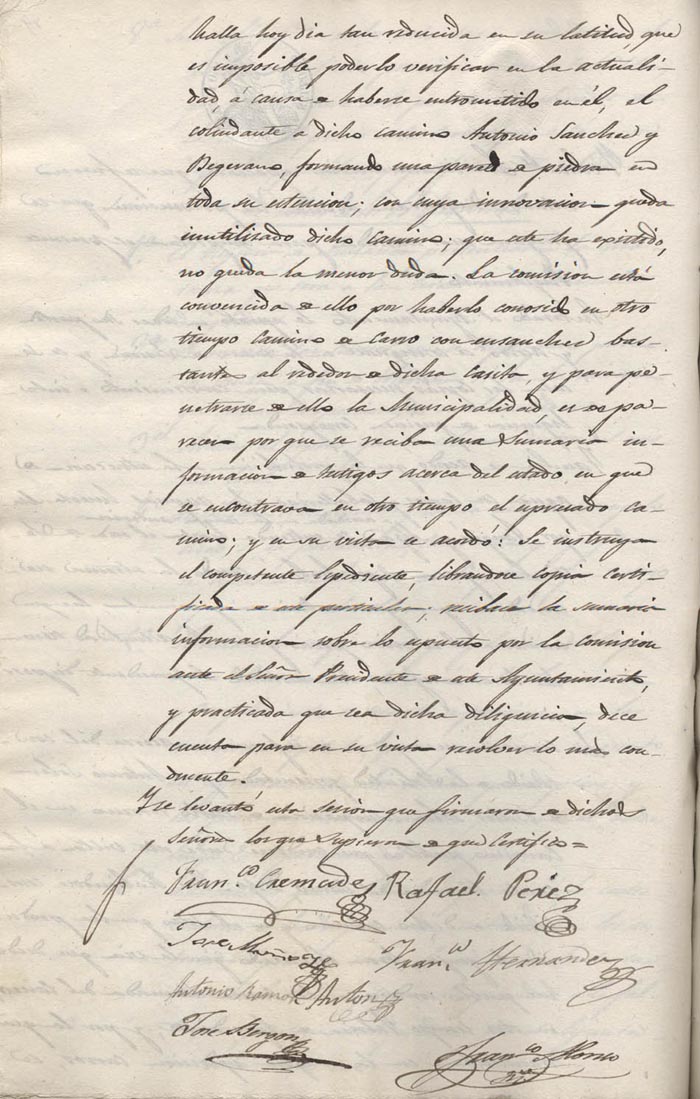 halla hoy dia tan reducida en su latitud, que
es imposible poderlo verificar en la actuali-
dad, á causa de haberse entrometido en él, el
colindante á dicho camino Antonio Sanchez y
Begerano, formando una pared de piedra en
toda su estencion; con cuya innovacion queda
inutilizado dicho camino; que este ha existido,
no queda la menor duda. La comision está
convencida de ello por haberlo conosido en otro
tiempo camino de Carro con ensanches bas-
tante al rededor de dicha Casita, y para pe-
netrarse de ello la Municipalidad, es de pa-
recer por que se reciba una Sumaria in-
formacion de testigos acerca del estado en que
se encontrava en otro tiempo el espresado ca-
mino; y en su vista se acordó: Se instruya
el competente Espediente, librandose copia certi-
ficada de este particular; recibase la sumaria
informacion sobre lo espuesto por la comision
ante el Señor Presidente de este Ayuntamiento,
y practicada que sea dicha diligencia, dese
cuenta para en su vista resolver lo mas con-
ducente.
Y se levantó esta sesion que firmaron de dichos
Señores los que supieron de que Certifico=
Fran.co Cremades Rafael Perez
Jose Muñoz Fran.co Hernandez
Antonio Ramon Anton
Jose Bergon
Fran.co Alonso